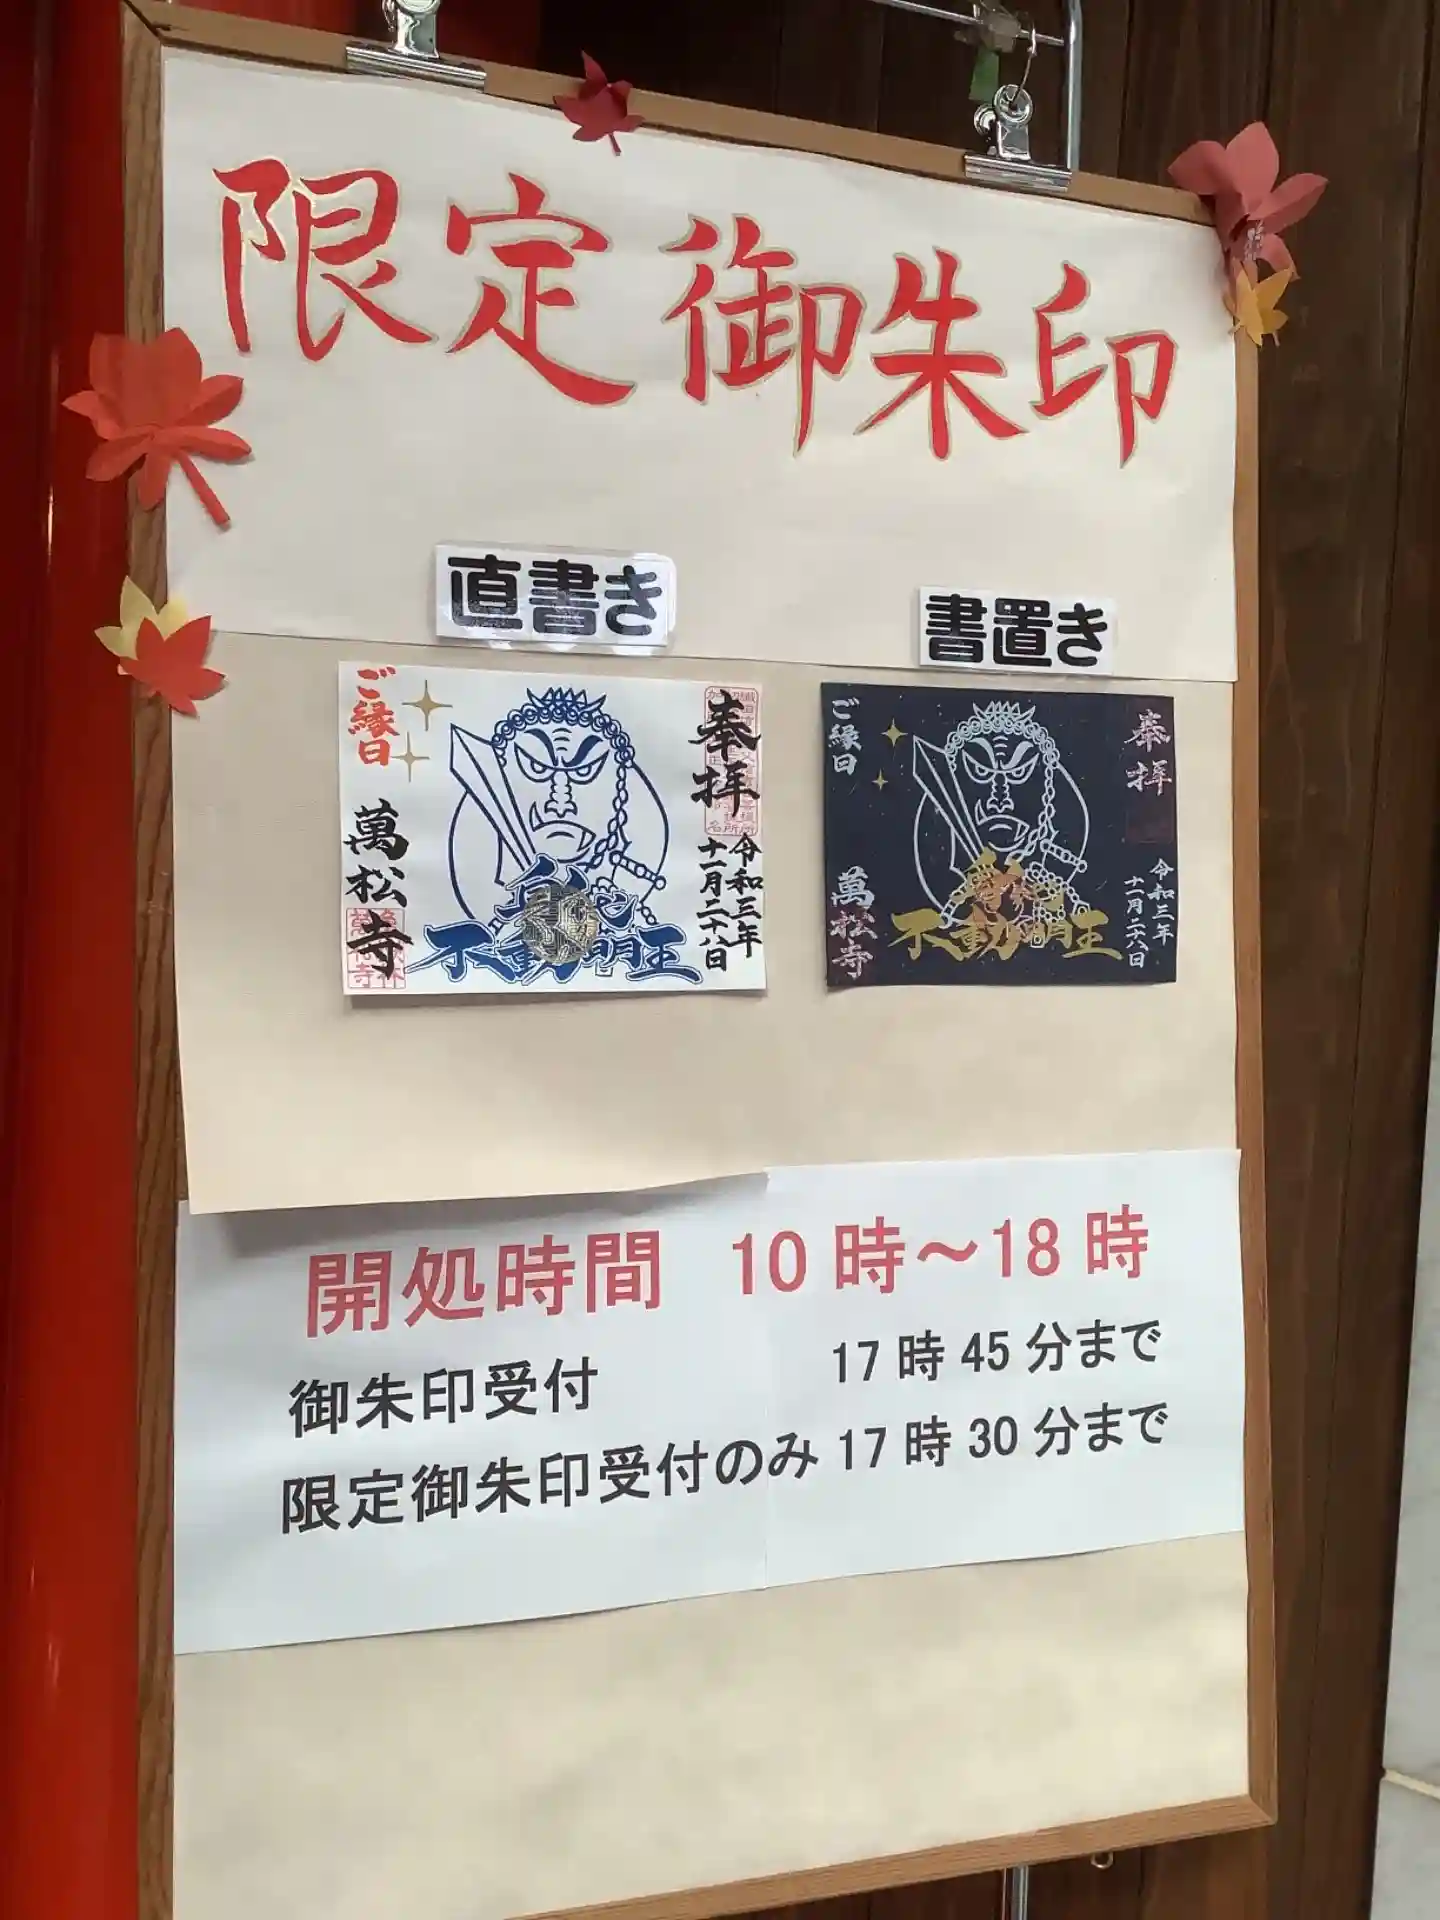 限定御朱印
直書き
書置き
ご縁日
萬松寺
奉拝
令和三年
十一月二十八日
不動明王
ご縁日
萬松寺
奉拝
令和三年
十一月二十八日
不動明王
開処時間 10時～18時
御朱印受付 17時45分まで
限定御朱印受付のみ 17時30分まで